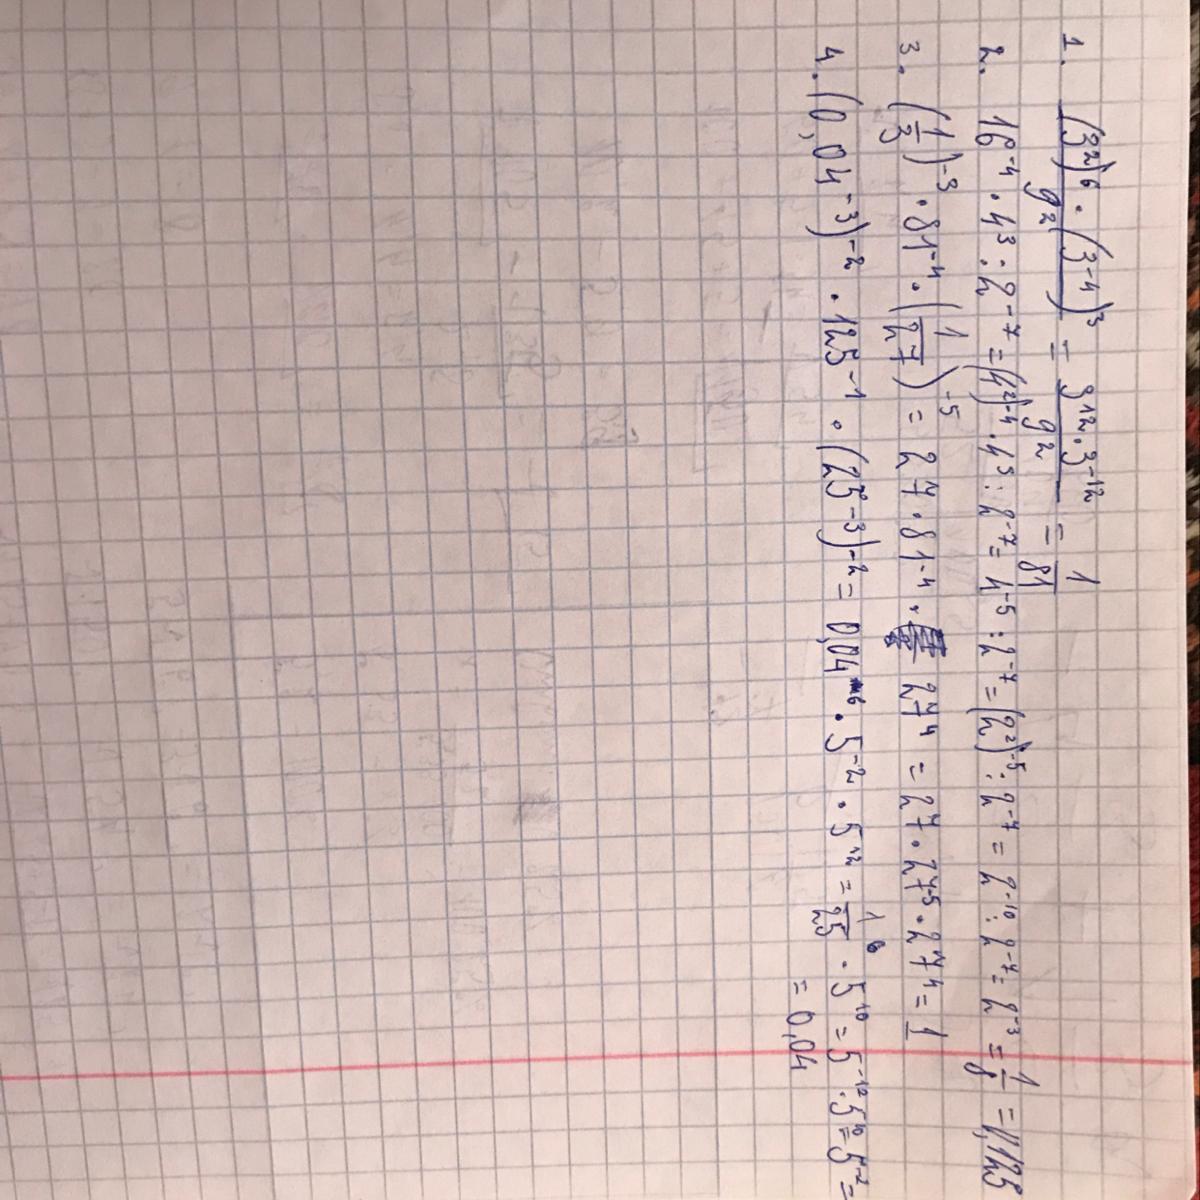 1. (3²)⁶ · (3⁻⁴)³ / 9² = 3¹² · 3⁻¹² / 9² = 1/81
2. 16⁻⁴ · 4³ : 2⁻⁷ = (4²)⁻⁴ · 4³ : 2⁻⁷ = 4⁻⁵ : 2⁻⁷ = (2²)⁻⁵ : 2⁻⁷ = 2⁻¹⁰ : 2⁻⁷ = 2⁻³ = 1/8 = 0,125
3. (1/3)⁻³ · 81⁻⁴ · (1/27)⁻⁵ = 27 · 81⁻⁴ · 27⁴ = 27 · 27⁻⁵ · 27⁴ = 1
4. (0,04⁻³)⁻² · 125⁻¹ · (25⁻³)⁻² = 0,04⁶ · 5⁻² · 5¹² = 1/25⁶ · 5¹⁰ = 5⁻¹² · 5¹⁰ = 5⁻² =
= 0,04